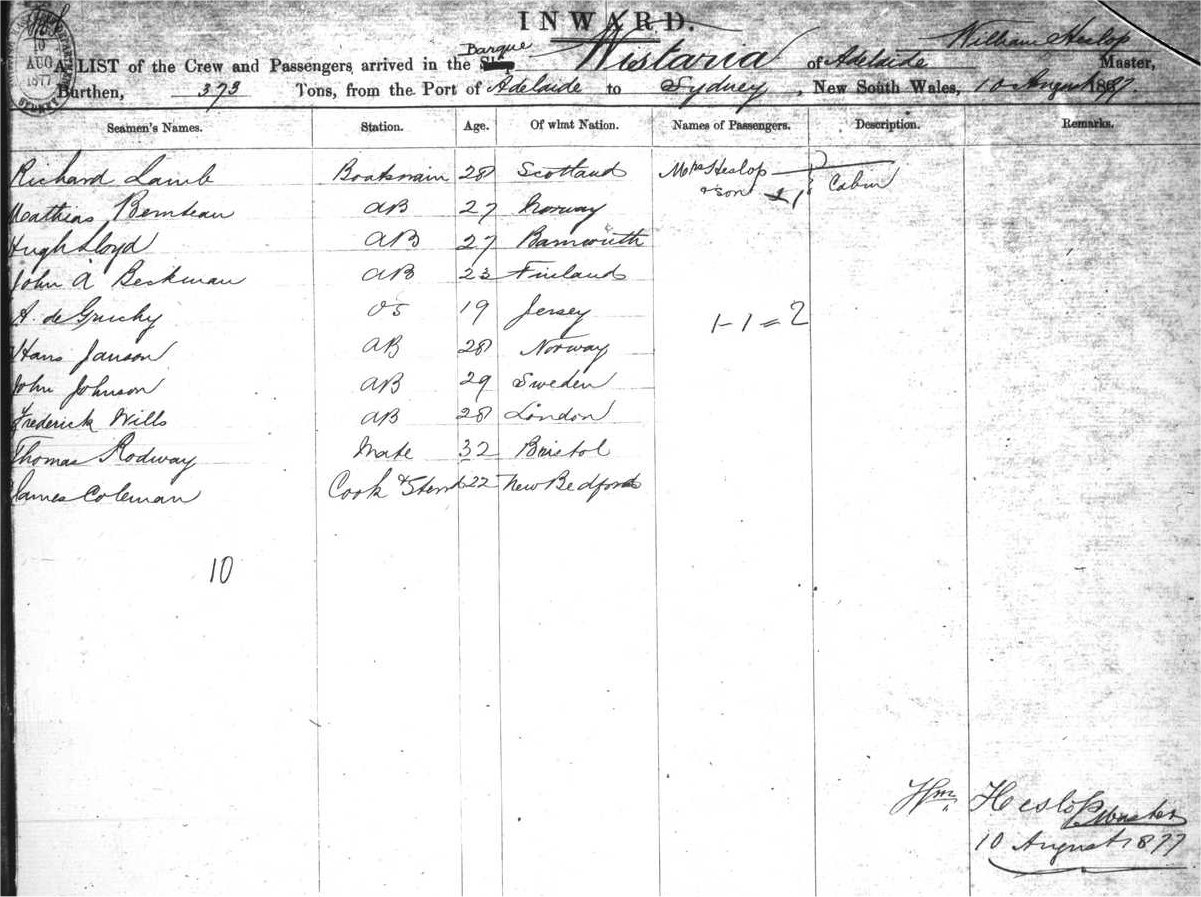 INWARD.
10
AUG
1877
SYDNEY
Barque
William Heslop
A LIST of the Crew and Passengers arrived in the Wistaria of Adelaide Master,
Burthen, 373 Tons, from the Port of Adelaide to Sydney, New South Wales, 10 August 1877.
Seamen's Names. Station. Age. Of what Nation. Names of Passengers. Description. Remarks.
Richard Lamb Boatswain 28 Scotland Mrs Heslop
& son 1 Cabin
Mathias AB 27 Norway
Hugh Lloyd AB 27
John A Beckman AB 23 Finland
A. de Gruchy OS 19 Jersey
1-1=2
Hans Janson AB 28 Norway
John Johnson AB 29 Sweden
Frederick Wills AB 28 London
Thomas Rodway Mate 32 Bristol
James Coleman Cook & Stewd 22 New Bedford
10
Wm Heslop Master
10 August 1877